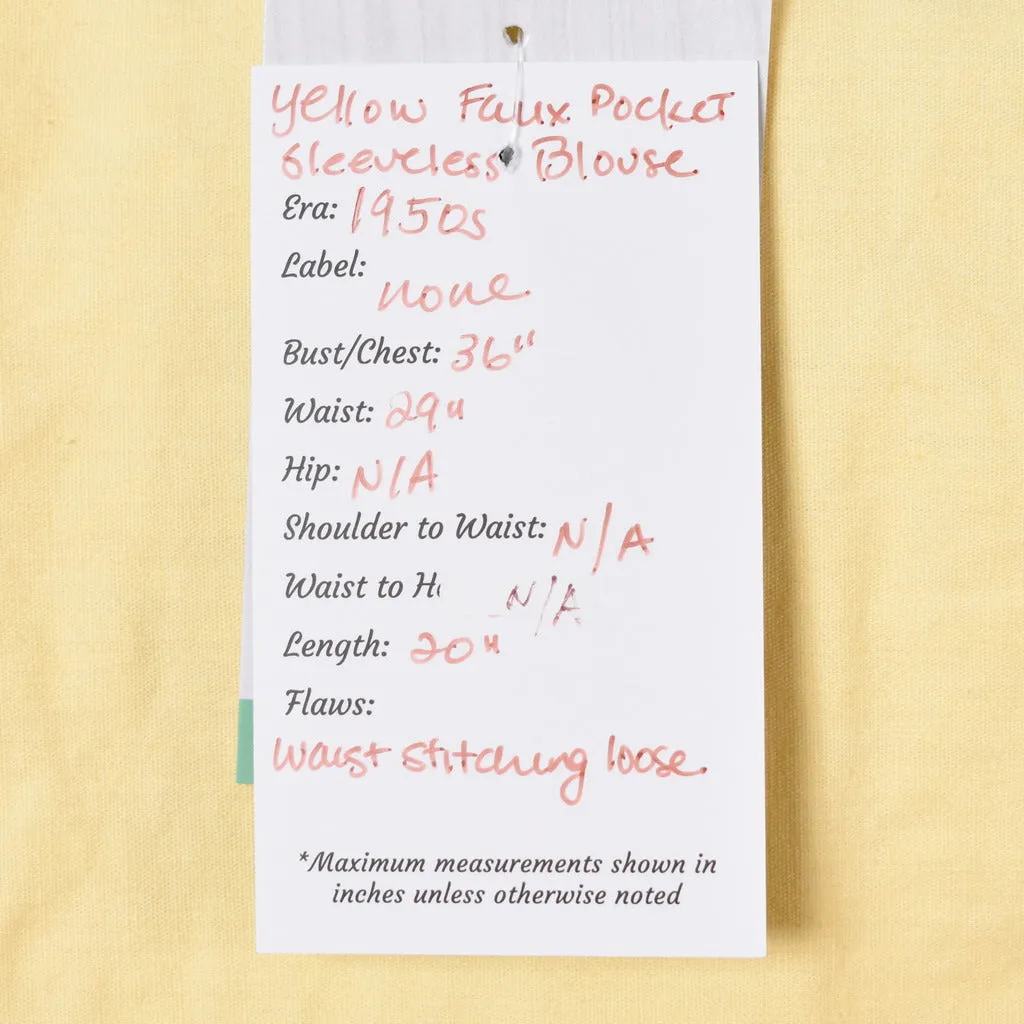 Yellow Faux Pocket
Sleeveless Blouse
Era: 1950s
Label: none
Bust/Chest: 36"
Waist: 29"
Hip: N/A
Shoulder to Waist: N/A
Waist to N/A
Length: 20"
Flaws:
Waist stitching loose
*Maximum measurements shown in
inches unless otherwise noted